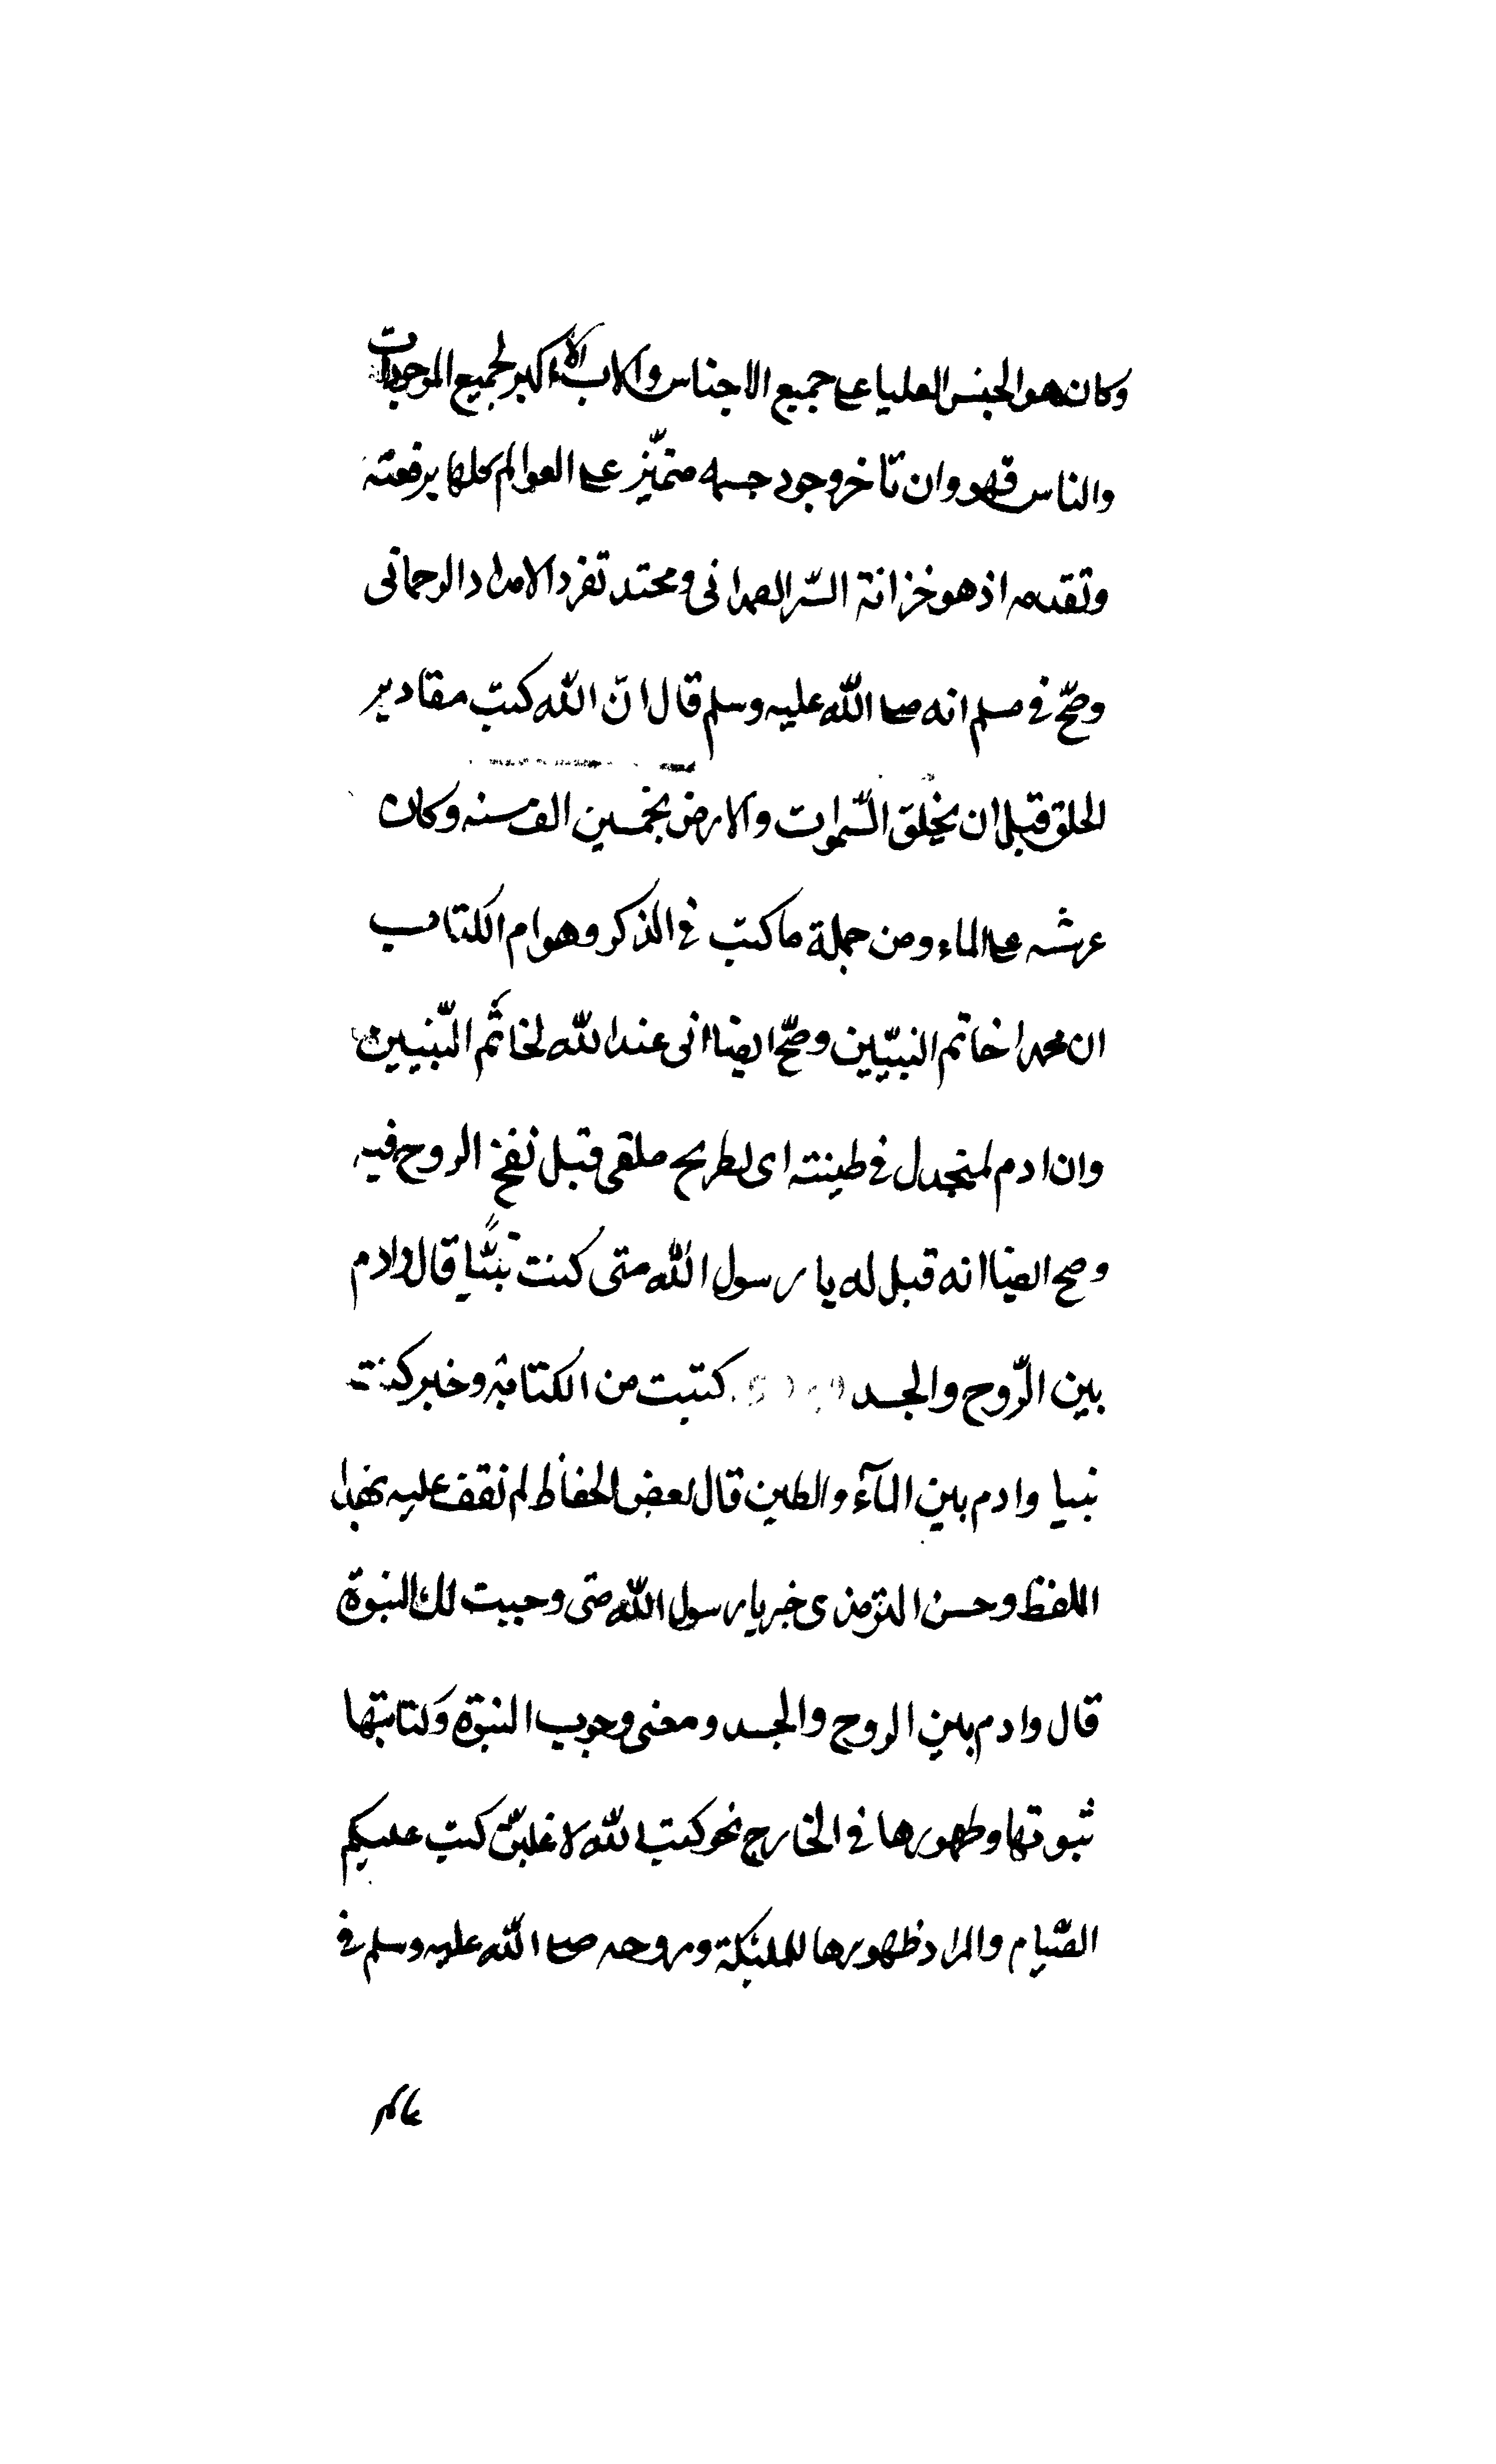 وكان هو الجنس العليا على جميع الاجناس والاب الاكبر لجميع الموجودات
والناس فهو وان تأخر وجود جسمه متميّز على العوالم كلها برفعته
وتقدمه اذ هو خزانة السّر الصمدانى ومحتد تفرد الامداد الرحمانى
وصّح فى مسلم انه صلى الله عليه وسلم قال انّ الله كتب مقادير
الخلق قبل ان يخلق السّموات والارض بخمسين الف سنه وكان
عرشه على الماء ومن جملة ما كتب فى الذكر وهو ام الكتاب
ان محمدا خاتم النبيّين وصّح ايضا انى عند الله لخاتم النّبيين
وان ادم لمنجدل فى طينته اى لطريح ملقى قبل نفخ الروح فيه
وصح ايضا انه قيل له يا رسول الله متى كنت نبيًّا قال وادم
بين الرّوح والجسد كتبت من الكتابة وخبر كنت
نبيا وادم بين المآء والطين قال بعض الحفاظ لم نقف عليه بهذا
اللفظ وحسن الترمذى خبر يا رسول الله متى وجبت لك النبوة
قال وادم بين الروح والجسد ومعنى وجوب النبوّة وكتابتها
ثبوتها وظهورها فى الخارج نحو كتب الله لاغلبنّ كتب عليكم
الصّيام والمراد ظهورها للملئكة وروحه صلى الله عليه وسلم فى
عالم